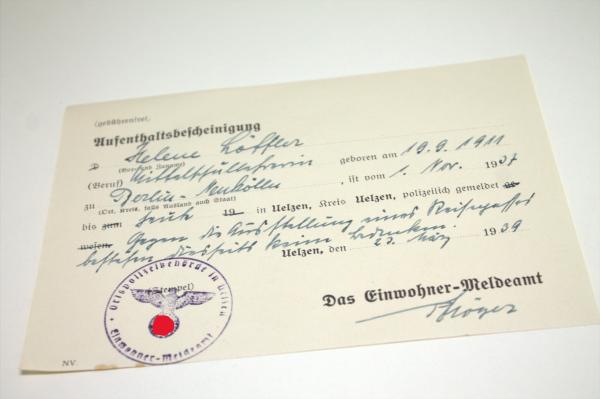 (gebührenfrei)
Aufenthaltsbescheinigung
Helene Löffler
(Vor- und Zuname)
(Beruf) Mittelschullehrerin geboren am 19.9.1911
zu Berlin-Neukölln, ist vom 1. Nov. 1937
(Ort, Kreis, falls Ausland auch Staat)
bis zum heute 19 in Uelzen, Kreis Uelzen, polizeilich gemeldet ge-
wesen. Gegen die Ausstellung eines Reisepasses
bestehen diesseits keine Bedenken.
Uelzen, den 23. März 1939
(Stempel)
Das Einwohner-Meldeamt
Ortspolizeibehörde in Uelzen
Einwohner-Meldeamt
NV.